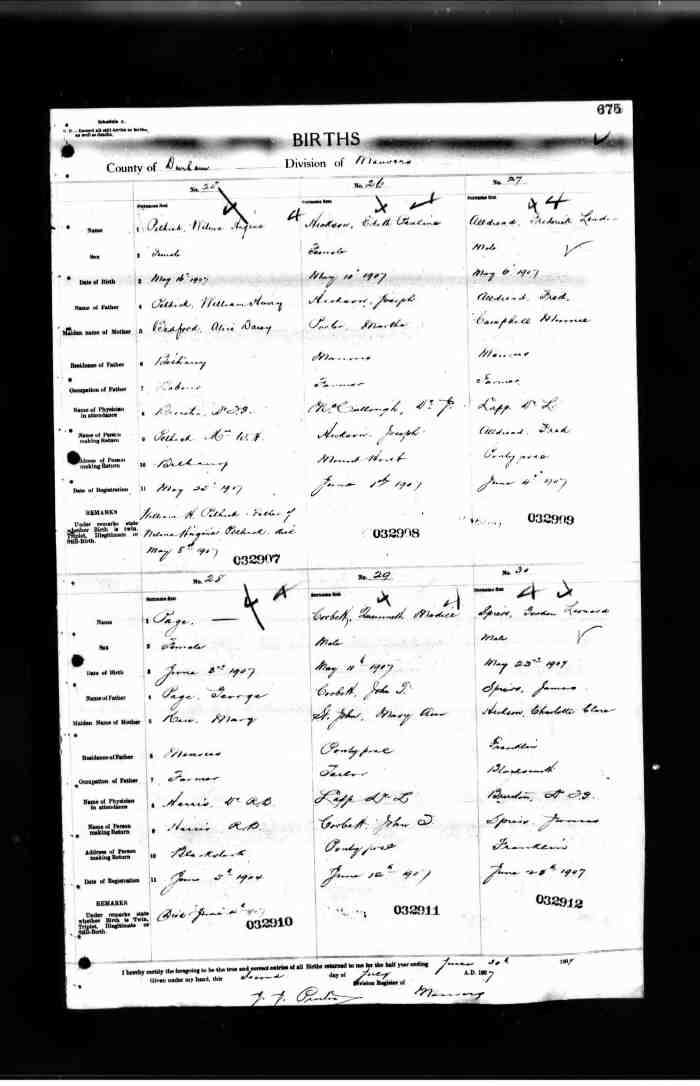 675
Schedule A.
BIRTHS
County of Durham Division of Manvers
No. 25 No. 26 No. 27
Name 1 Pethick, Wilma Hudson, Edith Pauline Alldread, Frederick
Sex 2 Female Female Male
Date of Birth 3 May 1907 May 10th 1907 May 6th 1907
Name of Father 4 Pethick, William Henry Hudson, Joseph Alldread, Fred.
Maiden name of Mother 5 Bradford, Alice Martha Campbell Minnie
Residence of Father 6 Bethany Manvers Manvers
Occupation of Father 7 Farmer Farmer
Name of Physician in attendance 8 McCullough, Dr. J. Lapp Dr L
Name of Person making Return 9 Pethick Mrs W. H. Hudson, Joseph Alldread, Fred
Address of Person making Return 10 Bethany Mount Horeb Pontypool
Date of Registration 11 May 22nd 1907 June 1st 1907 June 4th 1907
REMARKS
Under remarks state whether Birth is twin, Triplet, Illegitimate or Still-Birth.
William H. Pethick Father of
Pethick died
May 5th 1907
032907 032908 032909
No. 28 No. 29 No. 30
Name 1 Page, — Corbett, Kenneth Spiers, Gordon Leonard
Sex 2 Female Male Male
Date of Birth 3 June 3rd 1907 May 11th 1907 May 23rd 1907
Name of Father 4 Page, George Corbett, John T. Spiers, James
Maiden Name of Mother 5 Mary St. John, Mary Ann Hudson, Charlotte Clara
Residence of Father 6 Manvers Pontypool Franklin
Occupation of Father 7 Farmer Tailor Blacksmith
Name of Physician in attendance 8 Harris Dr R.B. Lapp Dr L
Name of Person making Return 9 Harris R.B. Corbett John T Spiers James
Address of Person making Return 10 Blackstock Pontypool Franklin
Date of Registration 11 June 12th 1907 June 28th 1907
REMARKS
Under remarks state whether Birth is Twin, Triplet, Illegitimate or Still-Birth.
Died June 4th 1907
032910 032911 032912
I hereby certify the foregoing to be the true and correct entries of all Births returned to me for the half year ending June 30th 1907
Given under my hand, this Second day of July A.D. 1907
Division Registrar of Manvers